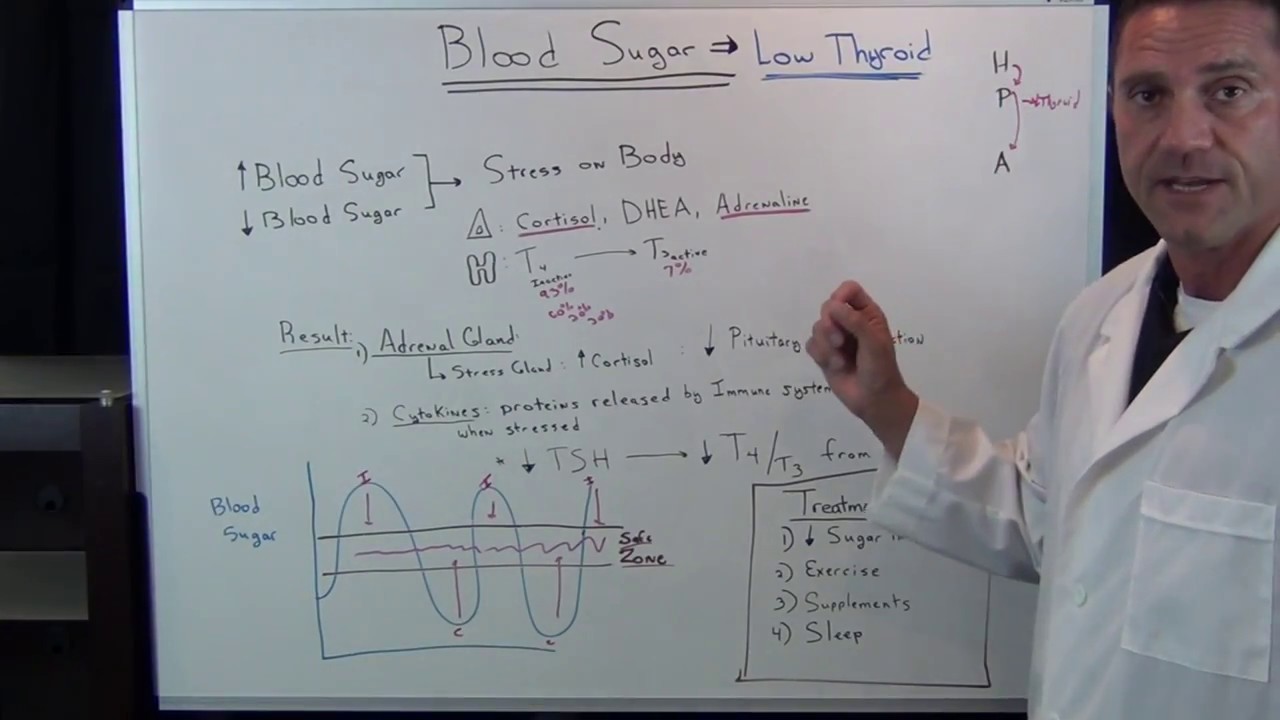 Blood Sugar ⇒ Low Thyroid
H
P → Thyroid
A
↑ Blood Sugar
↓ Blood Sugar
→ Stress on Body
: Cortisol, DHEA, Adrenaline
H : T4 → T3 active
Inactive
93%
7%
60% 20% 20%
Result: 1) Adrenal Gland
↳ Stress Gland : ↑ Cortisol : ↓ Pituitary
2) Cytokines: proteins released by Immune system
when stressed
* ↓ TSH → ↓ T4/T3 from
Blood
Sugar
I
I
I
C
C
Safe
Zone
1) ↓ Sugar
2) Exercise
3) Supplements
4) Sleep